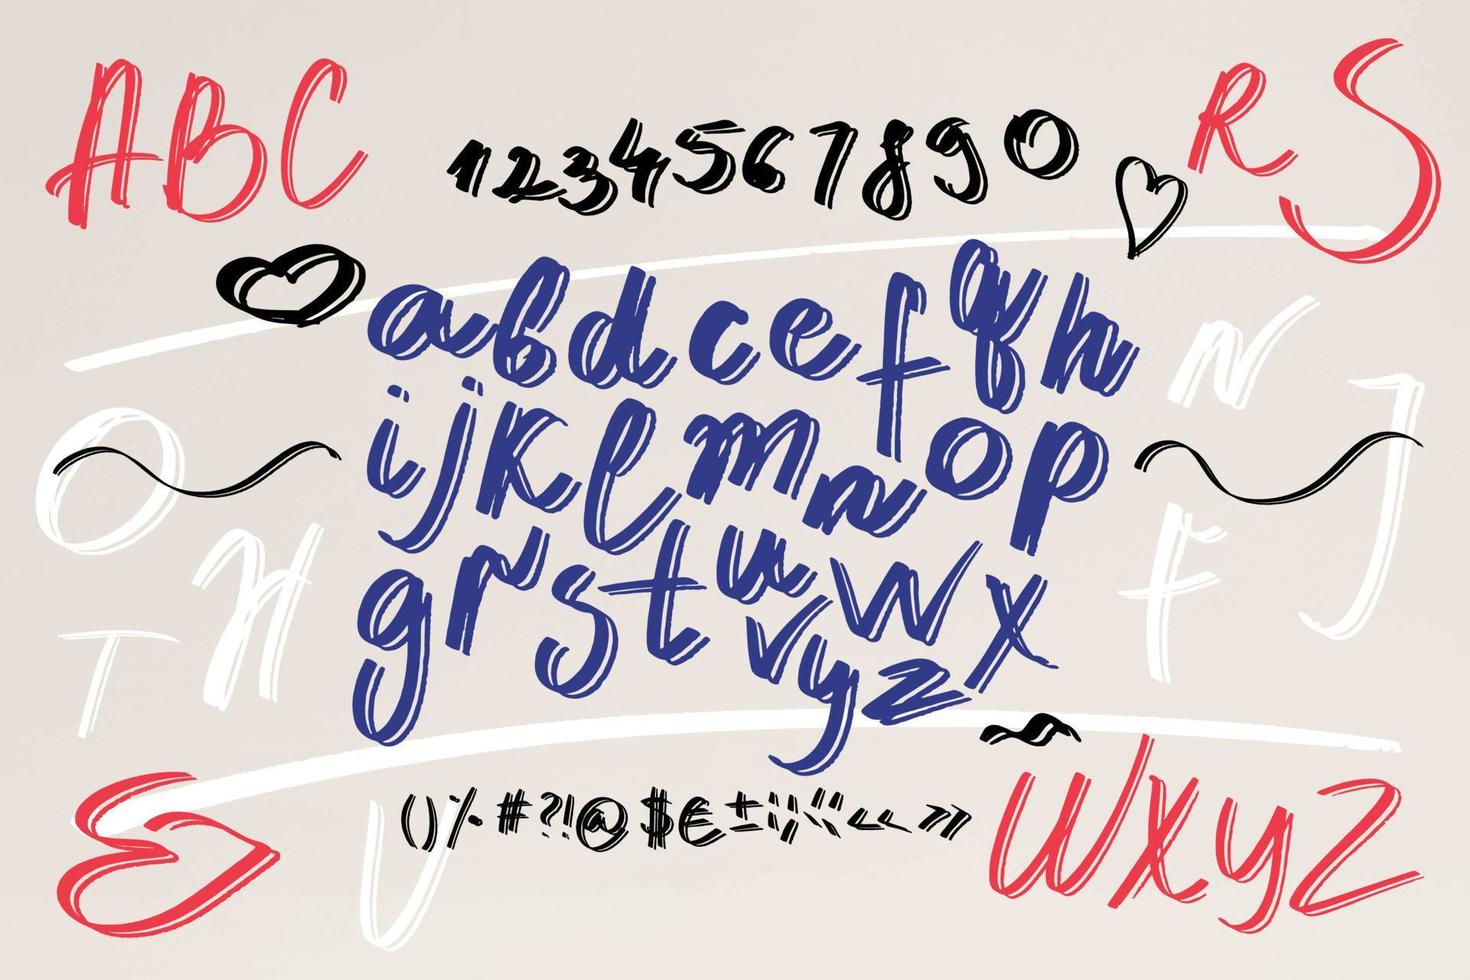 ABC
1234567890
RS
abdcefqh
N
J
ijklmnop
O
H
F
T
grstuvwxyz
()%#?!@$€
WXYZ